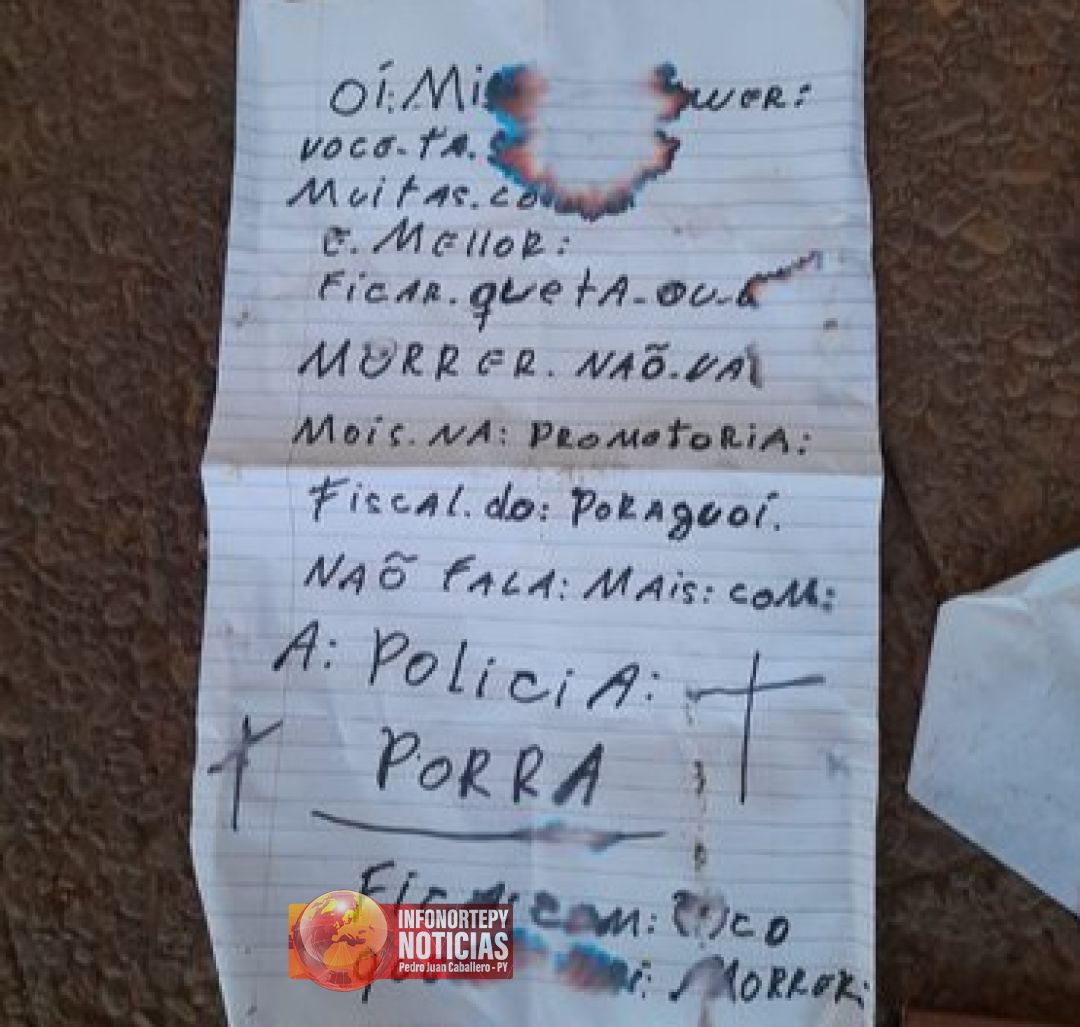 OI: Mi
WER:
VOCO-TA.
MUITAS.CO
E. MELLOR:
FICAR.QUETA-OU-
MORRER. NAÕ.VAI
MOIS.NA: PROMOTORIA:
FISCAL.do: PORAguoi.
NAÕ FALA: MAIS: COM:
A: POLICIA:
PORRA
COM:
MORRER:
INFONORTEPY
NOTICIAS
Pedro Juan Caballero - PY